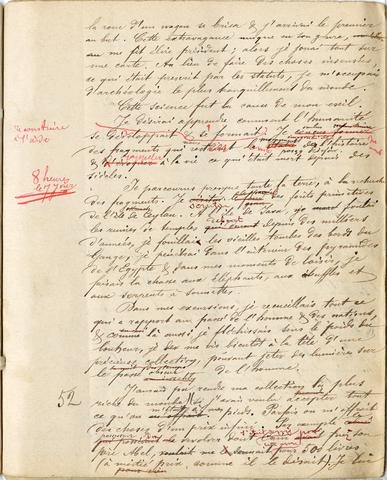 la roue d'un wagon se brisa & j'arrivai le premier
au but. Cette extravagance unique en son genre,
me fit élire président; alors je jouai tout sur
une carte. Au lieu de faire des choses insensées,
ce qui était prescrit par les statuts, je m'occupai
d'archéologie le plus tranquillement du monde.
Cette science fut la cause de mon exil.
Je désirai apprendre comment l'humanité
reconstruire
à l'aide
se développait & se formait. Je
des fragments qui l'histoire
rappeler
& à la vie ce qui était mort depuis des
siècles.
8 heures
le 7 jour
Je parcourus presque toute la terre, à la recherche
des fragments. Je des forêts primitives
de l'île de Ceylan. A l'île de Java, je
les ruines de temples depuis des milliers
d'années, je fouillais les vieilles toules des bords du
Ganges, je pénétrai dans l'intérieur des pyramides
de l'Egypte & dans mes moments de loisirs, je
faisais la chasse aux éléphants, aux buffles et
aux serpents à sonnettes.
Dans mes excursions, je recueillais tout ce
qui a rapport au passé de l'homme & des nations,
& comme là aussi, je fléchissais sous le poids du
bonheur, je me vis bientôt à la tête d'une
précieuse collection, pouvant jeter des lumières sur
le passé de l'homme.
52
J'aurais pu rendre ma collection plus
riche du monde si j'avais voulu accepter tout
ce qu'on pieds. Parfois on m'offrait
des choses d'un prix infini. Par exemple
le fut son
frère Abel, pour 500 livres
(à moitié prix, comme il le disait). Je